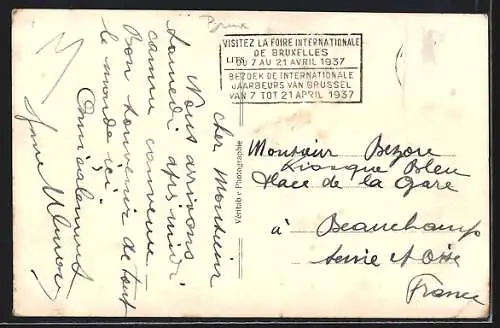 Brux
VISITEZ LA FOIRE INTERNATIONALE
DE BRUXELLES
DU 7 AU 21 AVRIL 1937
BEZOEK DE INTERNATIONALE
JAARBEURS VAN BRUSSEL
VAN 7 TOT 21 APRIL 1937
cher Monsieur
Nous arrivons
Samedi après midi
comme convenu –
Bon souvenir de tout
le monde ici
Amicalement
Véritable Photographie
Monsieur Bezore
Kiosque Bleu
Place de la Gare
à Beauchamp
Seine et Oise
France